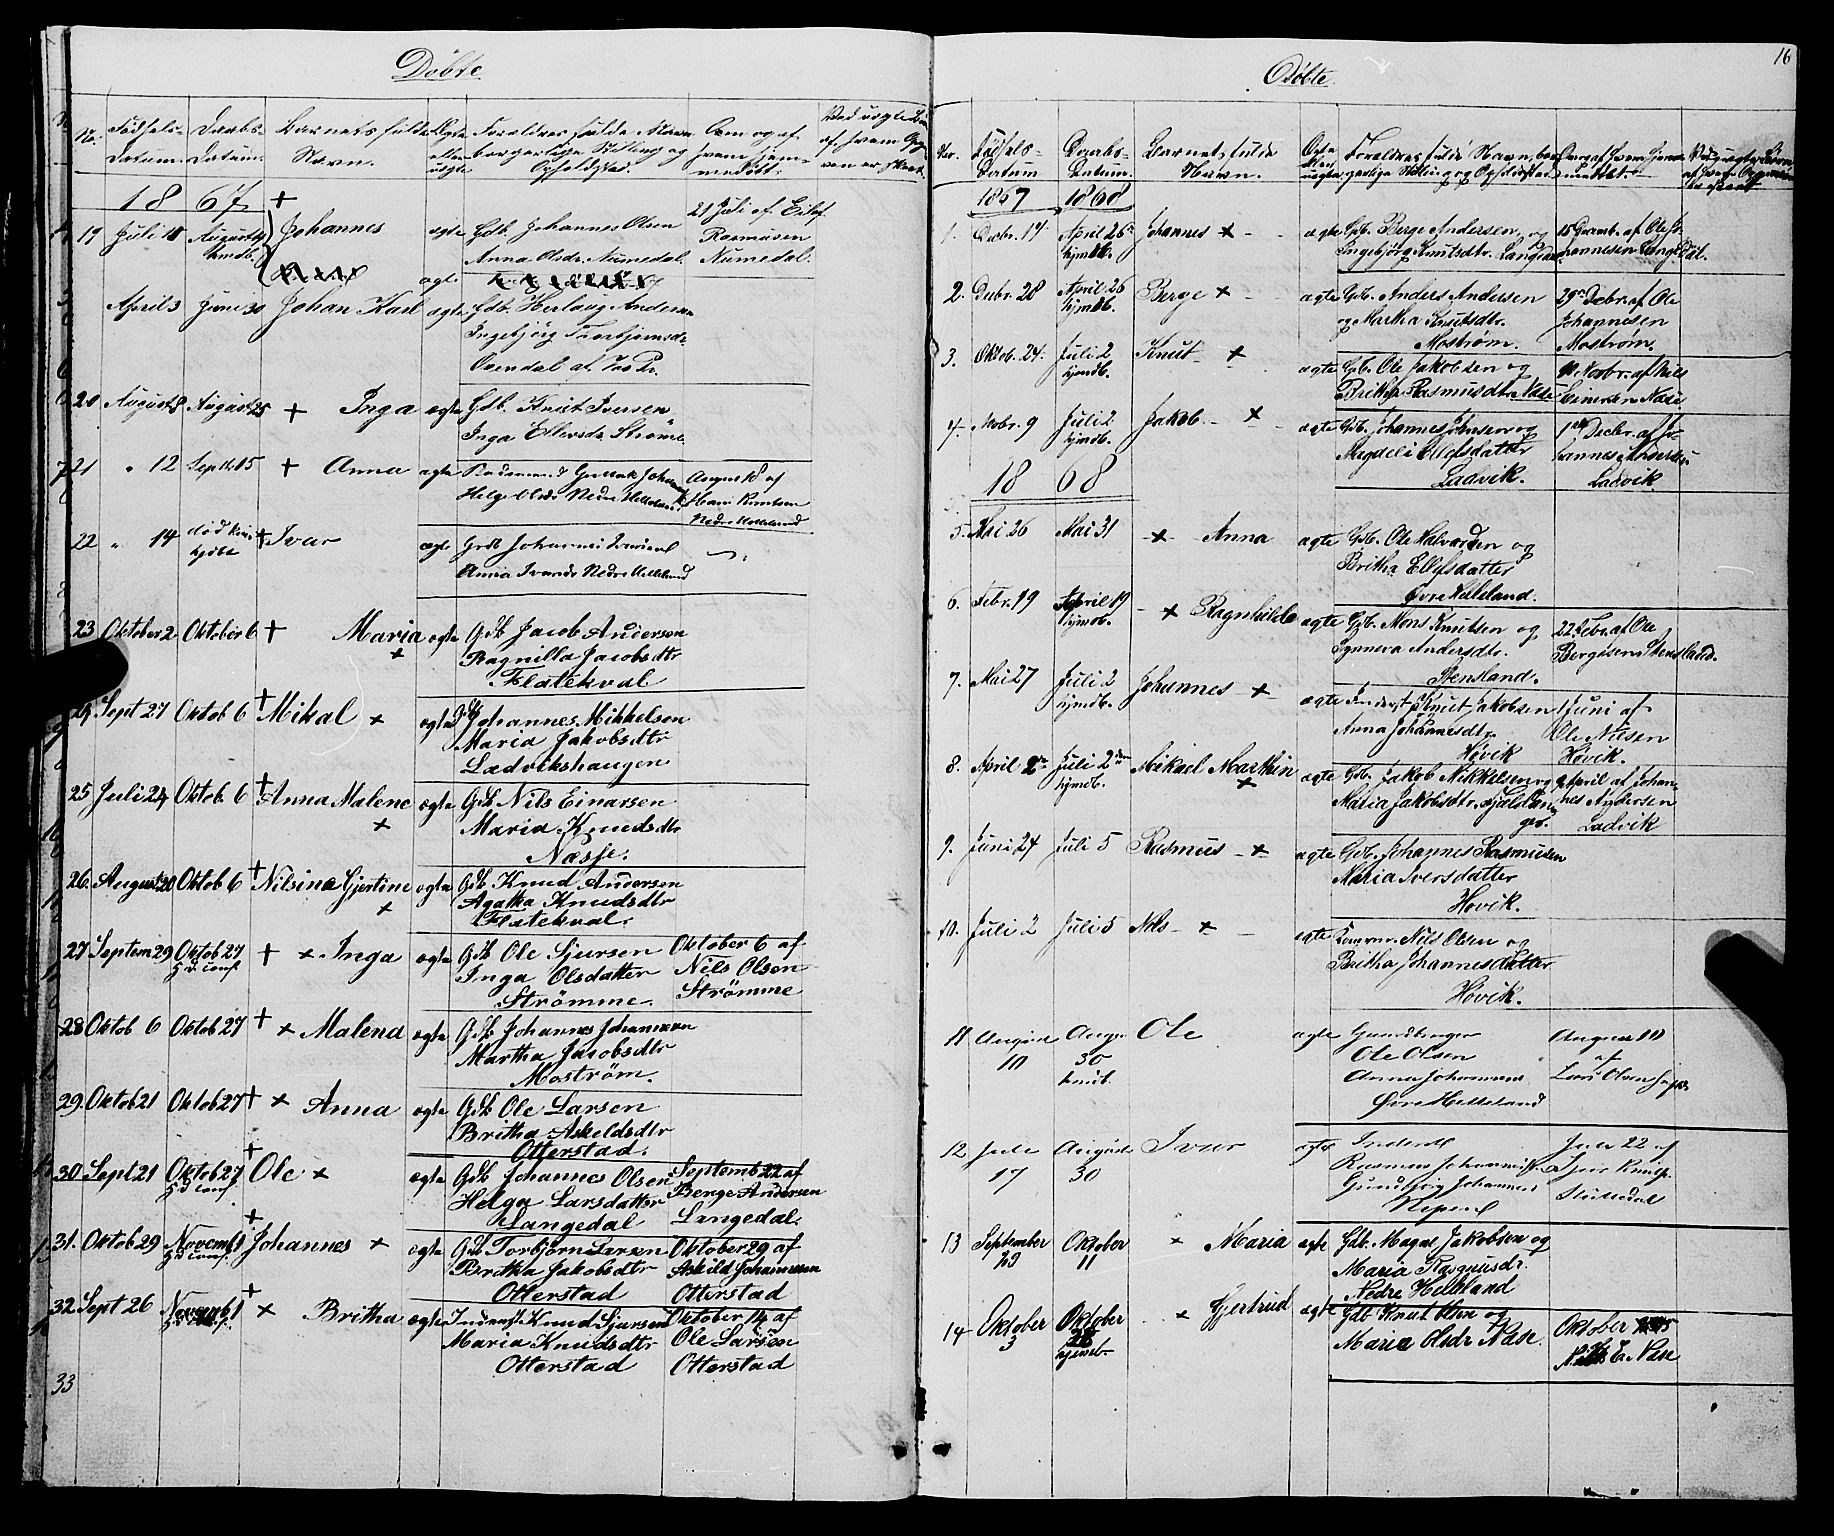 Døbte
No. Fødsels- Daabs- Barnets fulde Ægte Forældres fulde Navn
Datum. Datum. Navn. eller borgerlige Stilling og
uægte Opholdsted.
1867 +
19 Juli 18 August Johannes ægte Gdb. Johannes Olsen 21 Juli af Eilef
hmdb. Anna Olsdr. Numedal Rasmusen
Numedal.
ægte
April 3 Juni 30 Johan Karl ægte Gdb. Herlaug Andersen
Ingebjørg Thorbjørnsdr
af
20 August 8 August 25 + Inga ægte Gdb. Knut Iversen
Inga Ellevsdr Strømme
21 " 12 Septb. 15 + Anna ægte August 18 af
Helge Olsdr Nedre Helleland Hans Knutsen
Nedre Helleland
22 " 14 + Ivar ægte Gdb Johannes
hjdbt Anna Ivarsdr Nedre Helleland
23 Oktober 2 Oktober 6 + Maria ægte Gdb. Jacob Andersen
+ Ragnilla Jacobsdtr
Flatekval
24 Sept 27 Oktob 6 + Mikal + ægte Gdb Johannes Mikkelsen
Maria Jakobsdtr
Ladvikshaugen
25 Juli 24 Oktob. 6 + Anna Malene ægte Gdb Nils Einarsen
+ Maria Knudsdtr
Næsse.
26. August 20 Oktob 6 + Nilsina Gjertine ægte Gdb Knud Andersen
+ Agatha Knudsdtr
Flatekval.
27 Septem 29 Oktob 27 + + Inga ægte Gdb Ole Sjursen Oktober 6 af
Inga Olsdatter Nils Olsen
Strømme. Strømme
28 Oktob 6 Oktob 27 + + Malena ægte Gdb Johannes Johannesen
Martha Jacobsdtr
Mostrøm.
29. Oktob 21 Oktob 27 + + Anna ægte Gdb Ole Larsen
Britha Askeldsdtr
Otterstad.
30 Sept 21 Oktob 27 + Ole + ægte Gdb Johannes Olsen Septemb 22 af
Helga Larsdatter Berge Andersen
Langedal Langedal.
31. Oktob 29 Novemb 1 + Johannes + ægte Gdb Torbjørn Larsen Oktober 29 af
Britha Jakobsdtr Askild Johannesen
Otterstad Otterstad
32 Sept 26 Novemb 1 + + Britha ægte Inderst Knud Sjursen Oktober 14 af
Maria Knudsdtr Ole Larsen
Otterstad Otterstad
33
16
Døbte.
Nr. Fødsels- Daabs- Barnets fulde Ægte Forældres fulde Navn, bor-
Datum Datum. Navn. eller gerlige Stilling og Opholdsted
uægte
1867 1868
1. Decbr. 14 April 26 Johannes + ægte Gdb. Berge Andersen og 15 Decemb. af Ole Jo-
hjmdb. Ingebjørg Knutsdtr. Langedal hannesen Langedal.
2. Decbr. 28 April 26 Berge + ægte Gdb. Anders Andersen 29 Decbr. af Ole
hjmdb. og Martha Knutsdtr. Johannesen
Mostrøm. Mostrøm.
3. Oktob. 24. Juli 2 Knut + ægte Gdb. Ole Jakobsen og Novbr. af Nils
hjemdb. Britha Rasmusdtr. Nåse Einersen Nåse
4. Novbr. 9 Juli 2 Jakob + ægte Gdb. Johannes Johnsen og 1 Decbr. af Jo-
hjmdb. Magneli Ellefsdatter hannes Andersen
Ladvik. Ladvik.
1868
5. Mai 26 Mai 31 + Anna ægte Gdb. Ole Halvorsen og
Britha Ellefsdatter
Øvre Helleland.
6. Febr. 19 April 19 + Ragnhilde ægte Gdb. Mons Knutsen og 22 Febr. af Ole
hjmdb. Synneva Andersdtr. Bergesen Stensland.
Stensland.
7. Mai 27 Juli 2 Johannes + ægte Inderst Knut Jakobsen 1 Juni af
hjmdb. Anna Johannesdtr. Ole Nilsen
Høvik Høvik.
8. April 2 Juli 2 Mikael Marthin ægte Gdb. Jakob Mikkelsen og April af Johan-
hjmdb. + Maria Jakobsdtr. nes Andersen
Ladvik
9. Juni 24 Juli 5 Rasmus + ægte Gdb. Johannes Rasmusen
Maria Iversdatter
Høvik.
10. Juli 2 Juli 5 Nils + ægte Nils Olsen og
Britha Johannesdatter
Høvik.
11 August Augu Ole ægte Gaardbruger August 10
10 30 Ole Olsen af
hmdb. Anna Johannesd Lars Olsen
Øvre Helleland
12 Juli August Ivar ægte Inderst Juli 22 af
17 30 Rasmus Johannes
Johannesd
13 September Oktober + Maria ægte Gdb. Magne Jakobsen og
23 11 Maria Rasmusdr.
Nedre Helleland
14 Oktober Oktober + Gjertrud ægte Gdb Knut Olsen og Oktober 5
3 25 Maria Olsdr Nåse E. Nåse
hjemdb.